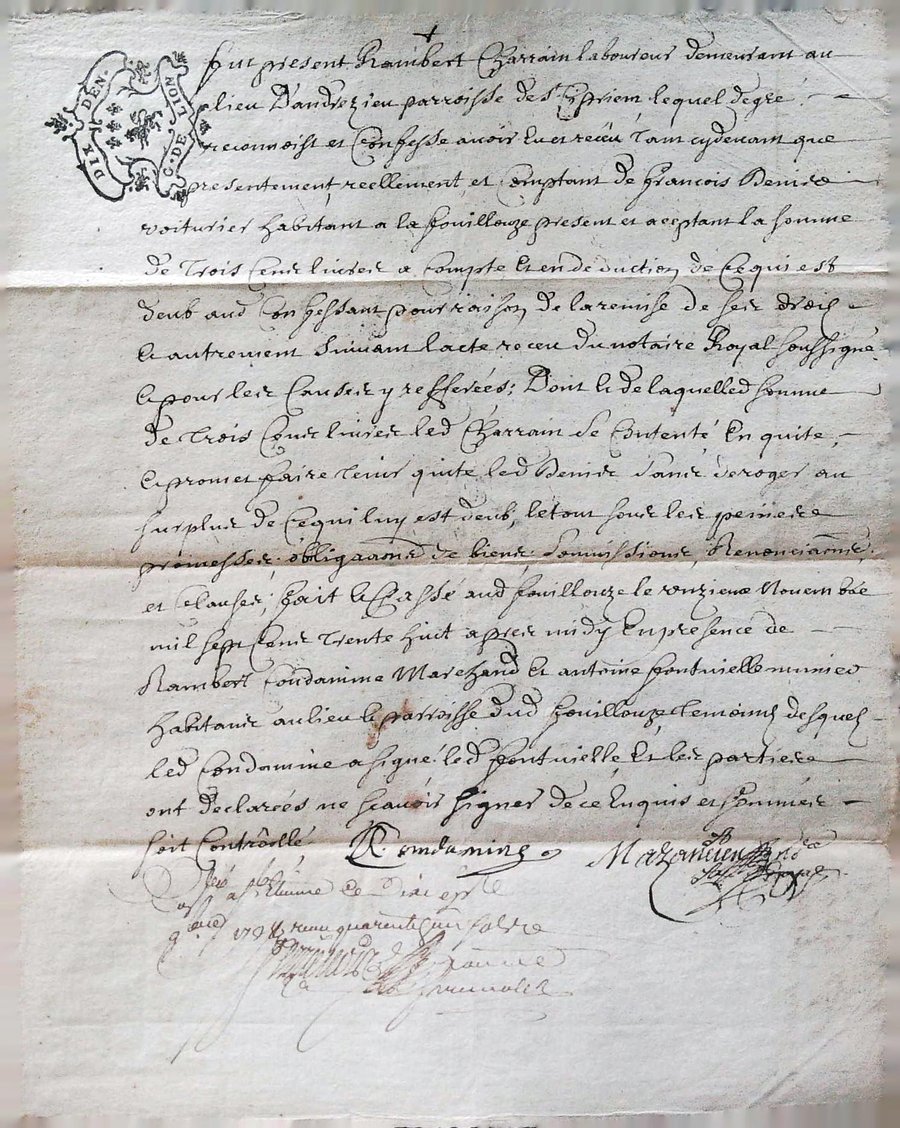 DIX DEN.
G. DE LION
fut present Rambert Charrain laboureur demeurant au
lieu Dandrezieu parroisse de st Cipriem, lequel de gre
reconnoist et Confesse avoir Eu et receu Tam cydevant que
presentement reellement et Comptant de francois Benier
voiturier habitant a la fouillouze present et aceptant la somme
de Trois Cens livres a Compte Et en deduction de Ce qui est
deub aud Confessant pour raison de la remise de ses droits
Et autrement Suivant lacte receu du notaire Royal soussigné
Et pour les Causes y refferées; Dont Et de laquelled somme
de Trois Cens livres led Charrain Se Contente En quite
Et promet faire Tenir quite led Benier Sans deroger au
surplus de Ce qui luy est deub, le tout sous les peines
promesses, obligaons de biens Soumissions, Renonciaons,
et Clauses; fait Et Passé aud fouillouze le onzieme Novembre
mil sept Cens Trente huit apres midy En presence de
Rambert Condamine Marchand Et antoine fontvielle
habitans au lieu Et parroisse dud fouillouze Temoins desquels
led Condamine a signé led fontvielle Et les parties
ont declarées ne scavoir signer de ce Enquis et Sommés
soit Controllé
R. Condamine
Mazancieu
Royal
1738